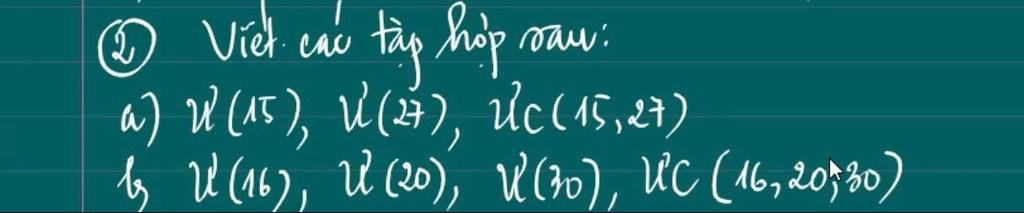 ② Viết các tập hợp sau:
a) Ư(15), Ư(27), ƯC(15,27)
b) Ư(16), Ư(20), Ư(30), ƯC(16,20,30)